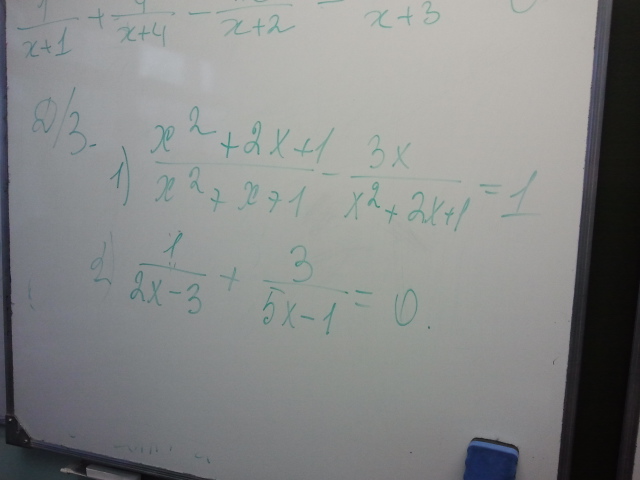 1/(x+1) + 4/(x+4) - /(x+2) = /(x+3)
Д/З.
1) (x² + 2x + 1)/(x² + x + 1) - 3x/(x² + 2x + 1) = 1
2) 1/(2x - 3) + 3/(5x - 1) = 0.